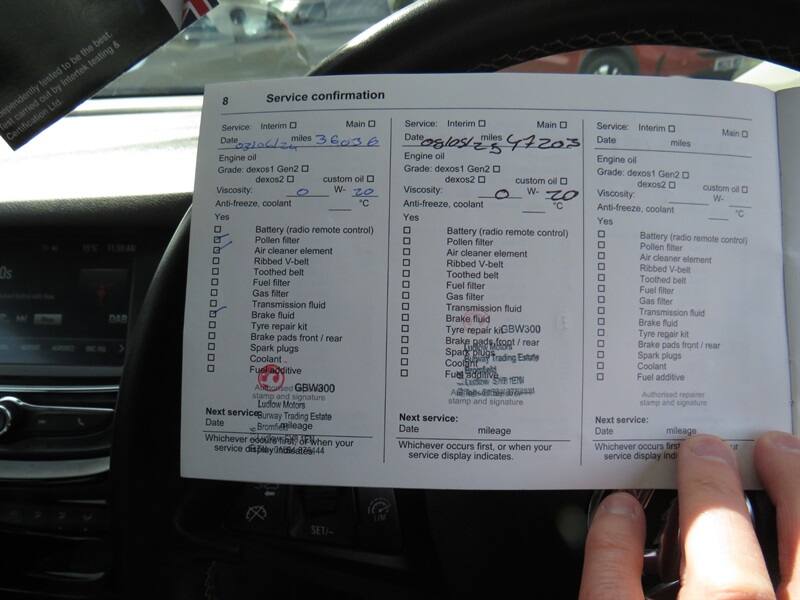 ependently tested to be the best.
rst carried out by Intertek testing &
Certification Ltd.
8 Service confirmation
Service: Interim Main
Date miles 36036
Engine oil
Grade: dexos1 Gen2
dexos2 custom oil
Viscosity: 0 W- 20
Anti-freeze, coolant °C
Yes
Battery (radio remote control)
Pollen filter
Air cleaner element
Ribbed V-belt
Toothed belt
Fuel filter
Gas filter
Transmission fluid
Brake fluid
Tyre repair kit
Brake pads front / rear
Spark plugs
Coolant
Fuel additive
Authorised
GBW300
stamp and signature
Ludlow Motors
Burway Trading Estate
Bromfield
Next service:
Date mileage
Whichever occurs first, or when your
service display indicates.
Service: Interim Main
Date 08/05/25 miles 47203
Engine oil
Grade: dexos1 Gen2
dexos2 custom oil
Viscosity: 0 W- 20
Anti-freeze, coolant °C
Yes
Battery (radio remote control)
Pollen filter
Air cleaner element
Ribbed V-belt
Toothed belt
Fuel filter
Gas filter
Transmission fluid
Brake fluid
Tyre repair kit GBW300
Brake pads front / rear
Spark plugs
Coolant
Fuel additive
Ludlow Motors
Burway Trading Estate
Bromfield
Ludlow SY8 1EN
stamp and signature
Next service:
Date mileage
Whichever occurs first, or when your
service display indicates.
Service: Interim Main
Date miles
Engine oil
Grade: dexos1 Gen2
dexos2 custom oil
Viscosity: W-
Anti-freeze, coolant °C
Yes
Battery (radio remote control)
Pollen filter
Air cleaner element
Ribbed V-belt
Toothed belt
Fuel filter
Gas filter
Transmission fluid
Brake fluid
Tyre repair kit
Brake pads front / rear
Spark plugs
Coolant
Fuel additive
Authorised repairer
stamp and signature
Next service:
Date mileage
Whichever occurs first, or when your
service display indicates.
0s
DAB
SET/–